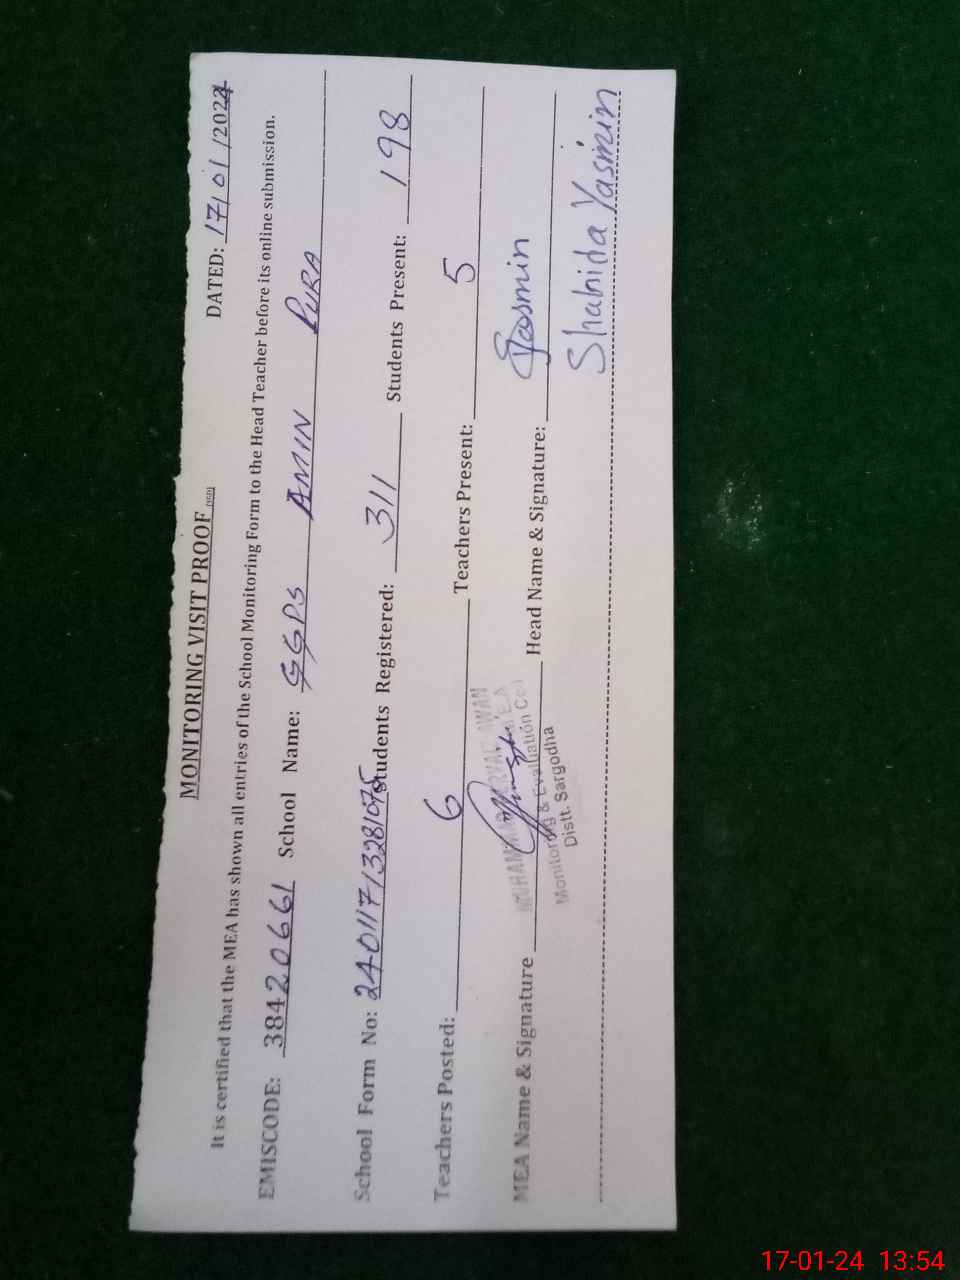 MONITORING VISIT PROOF
DATED: 17/01/2024
It is certified that the MEA has shown all entries of the School Monitoring Form to the Head Teacher before its online submission.
EMISCODE: 38420661 School Name: GGPS AMIN PURA
School Form No: 24011713281075 Students Registered: 311 Students Present: 198
Teachers Posted: 6 Teachers Present: 5
MEA Name & Signature Head Name & Signature: Yasmin
MUHAMMAD AWAN
MEA
Monitoring & Evaluation Cell
Distt. Sargodha
Shahida Yasmin
17-01-24 13:54